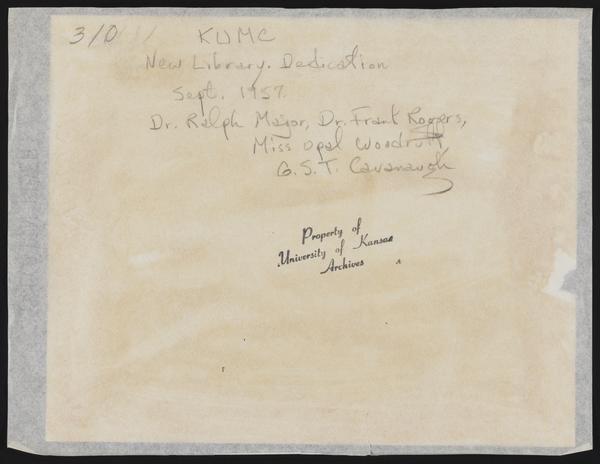 3/0 KUMC
New Library. Dedication
Sept. 1957.
Dr. Ralph Major, Dr. Frank Rogers,
Miss Opal Woodruff
G.S.T. Cavanaugh
Property of
University of Kansas
Archives